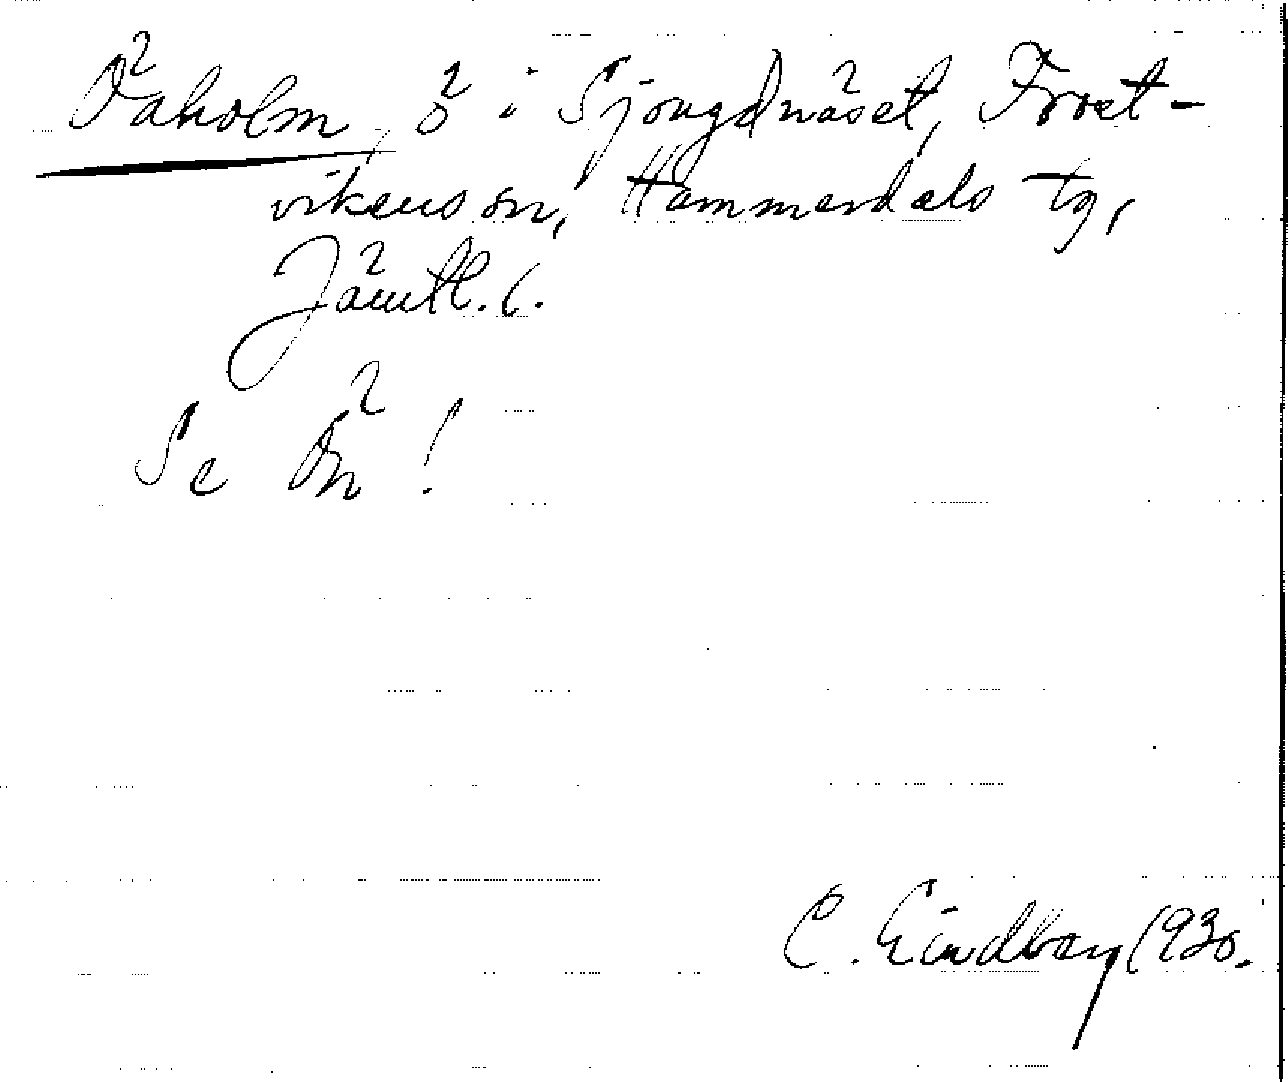 Öaholm, ö i Sjougdnäset, Frost-
vikens sn, Hammerdals tg,
Jämtl. l.
Se Ön!
C. Lindberg 1930.